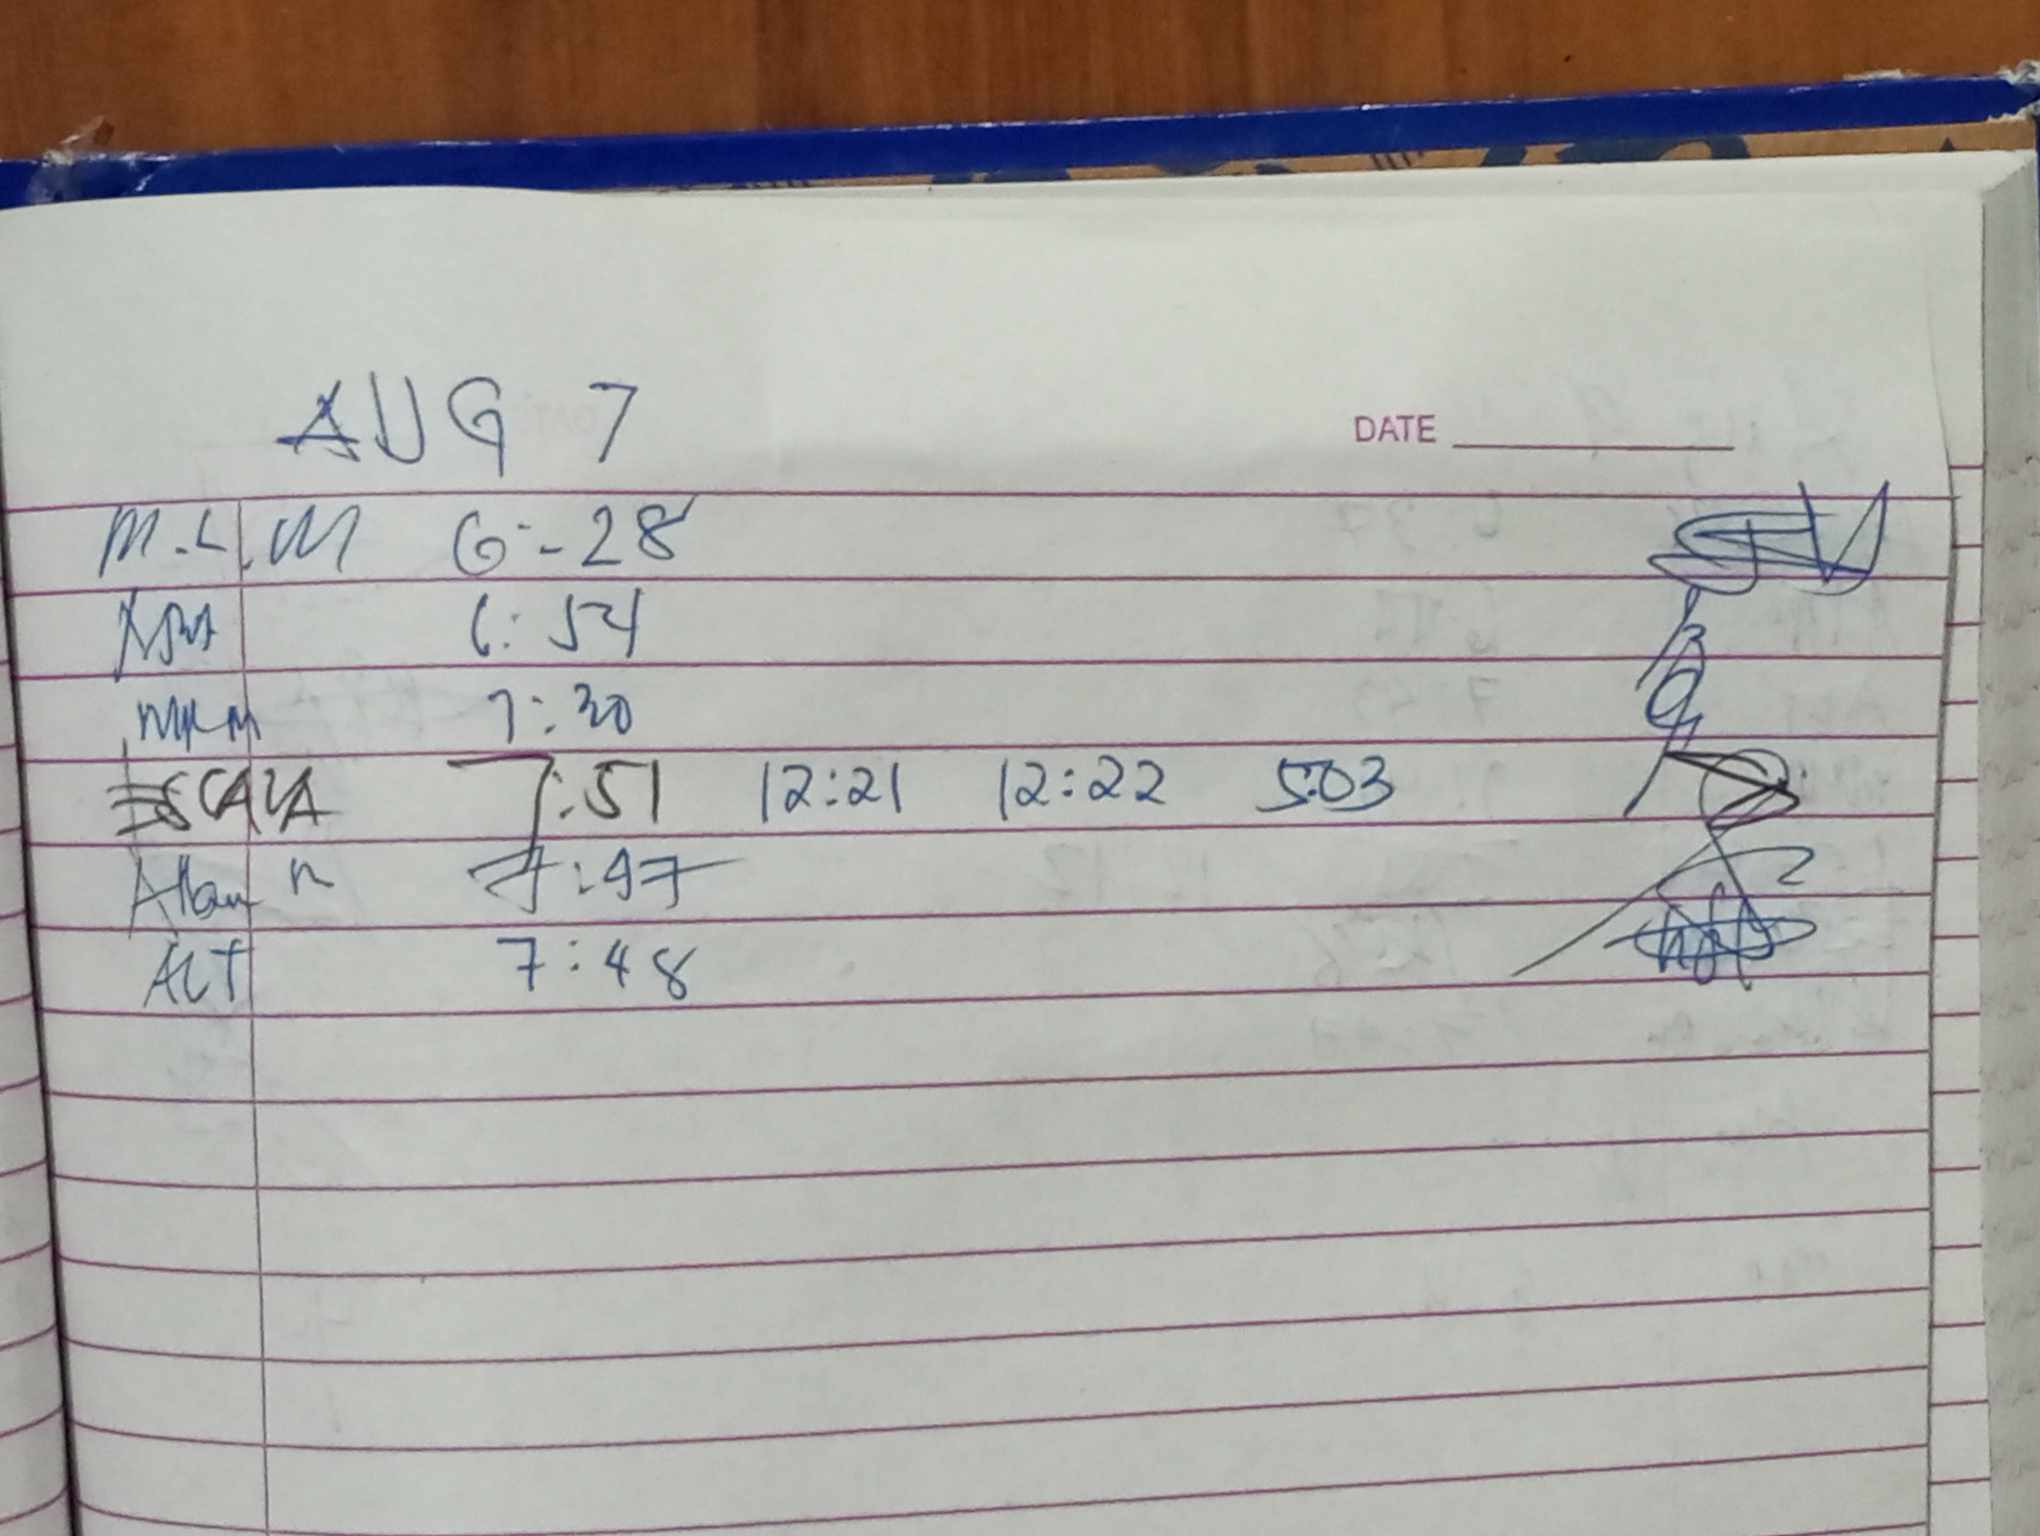 AUG 7
DATE
M.L.M 6:-28
6:54
MKM 7:30
ESCALA 7:51 12:21 12:22 5:03
Allan n 7:47
ALT 7:48